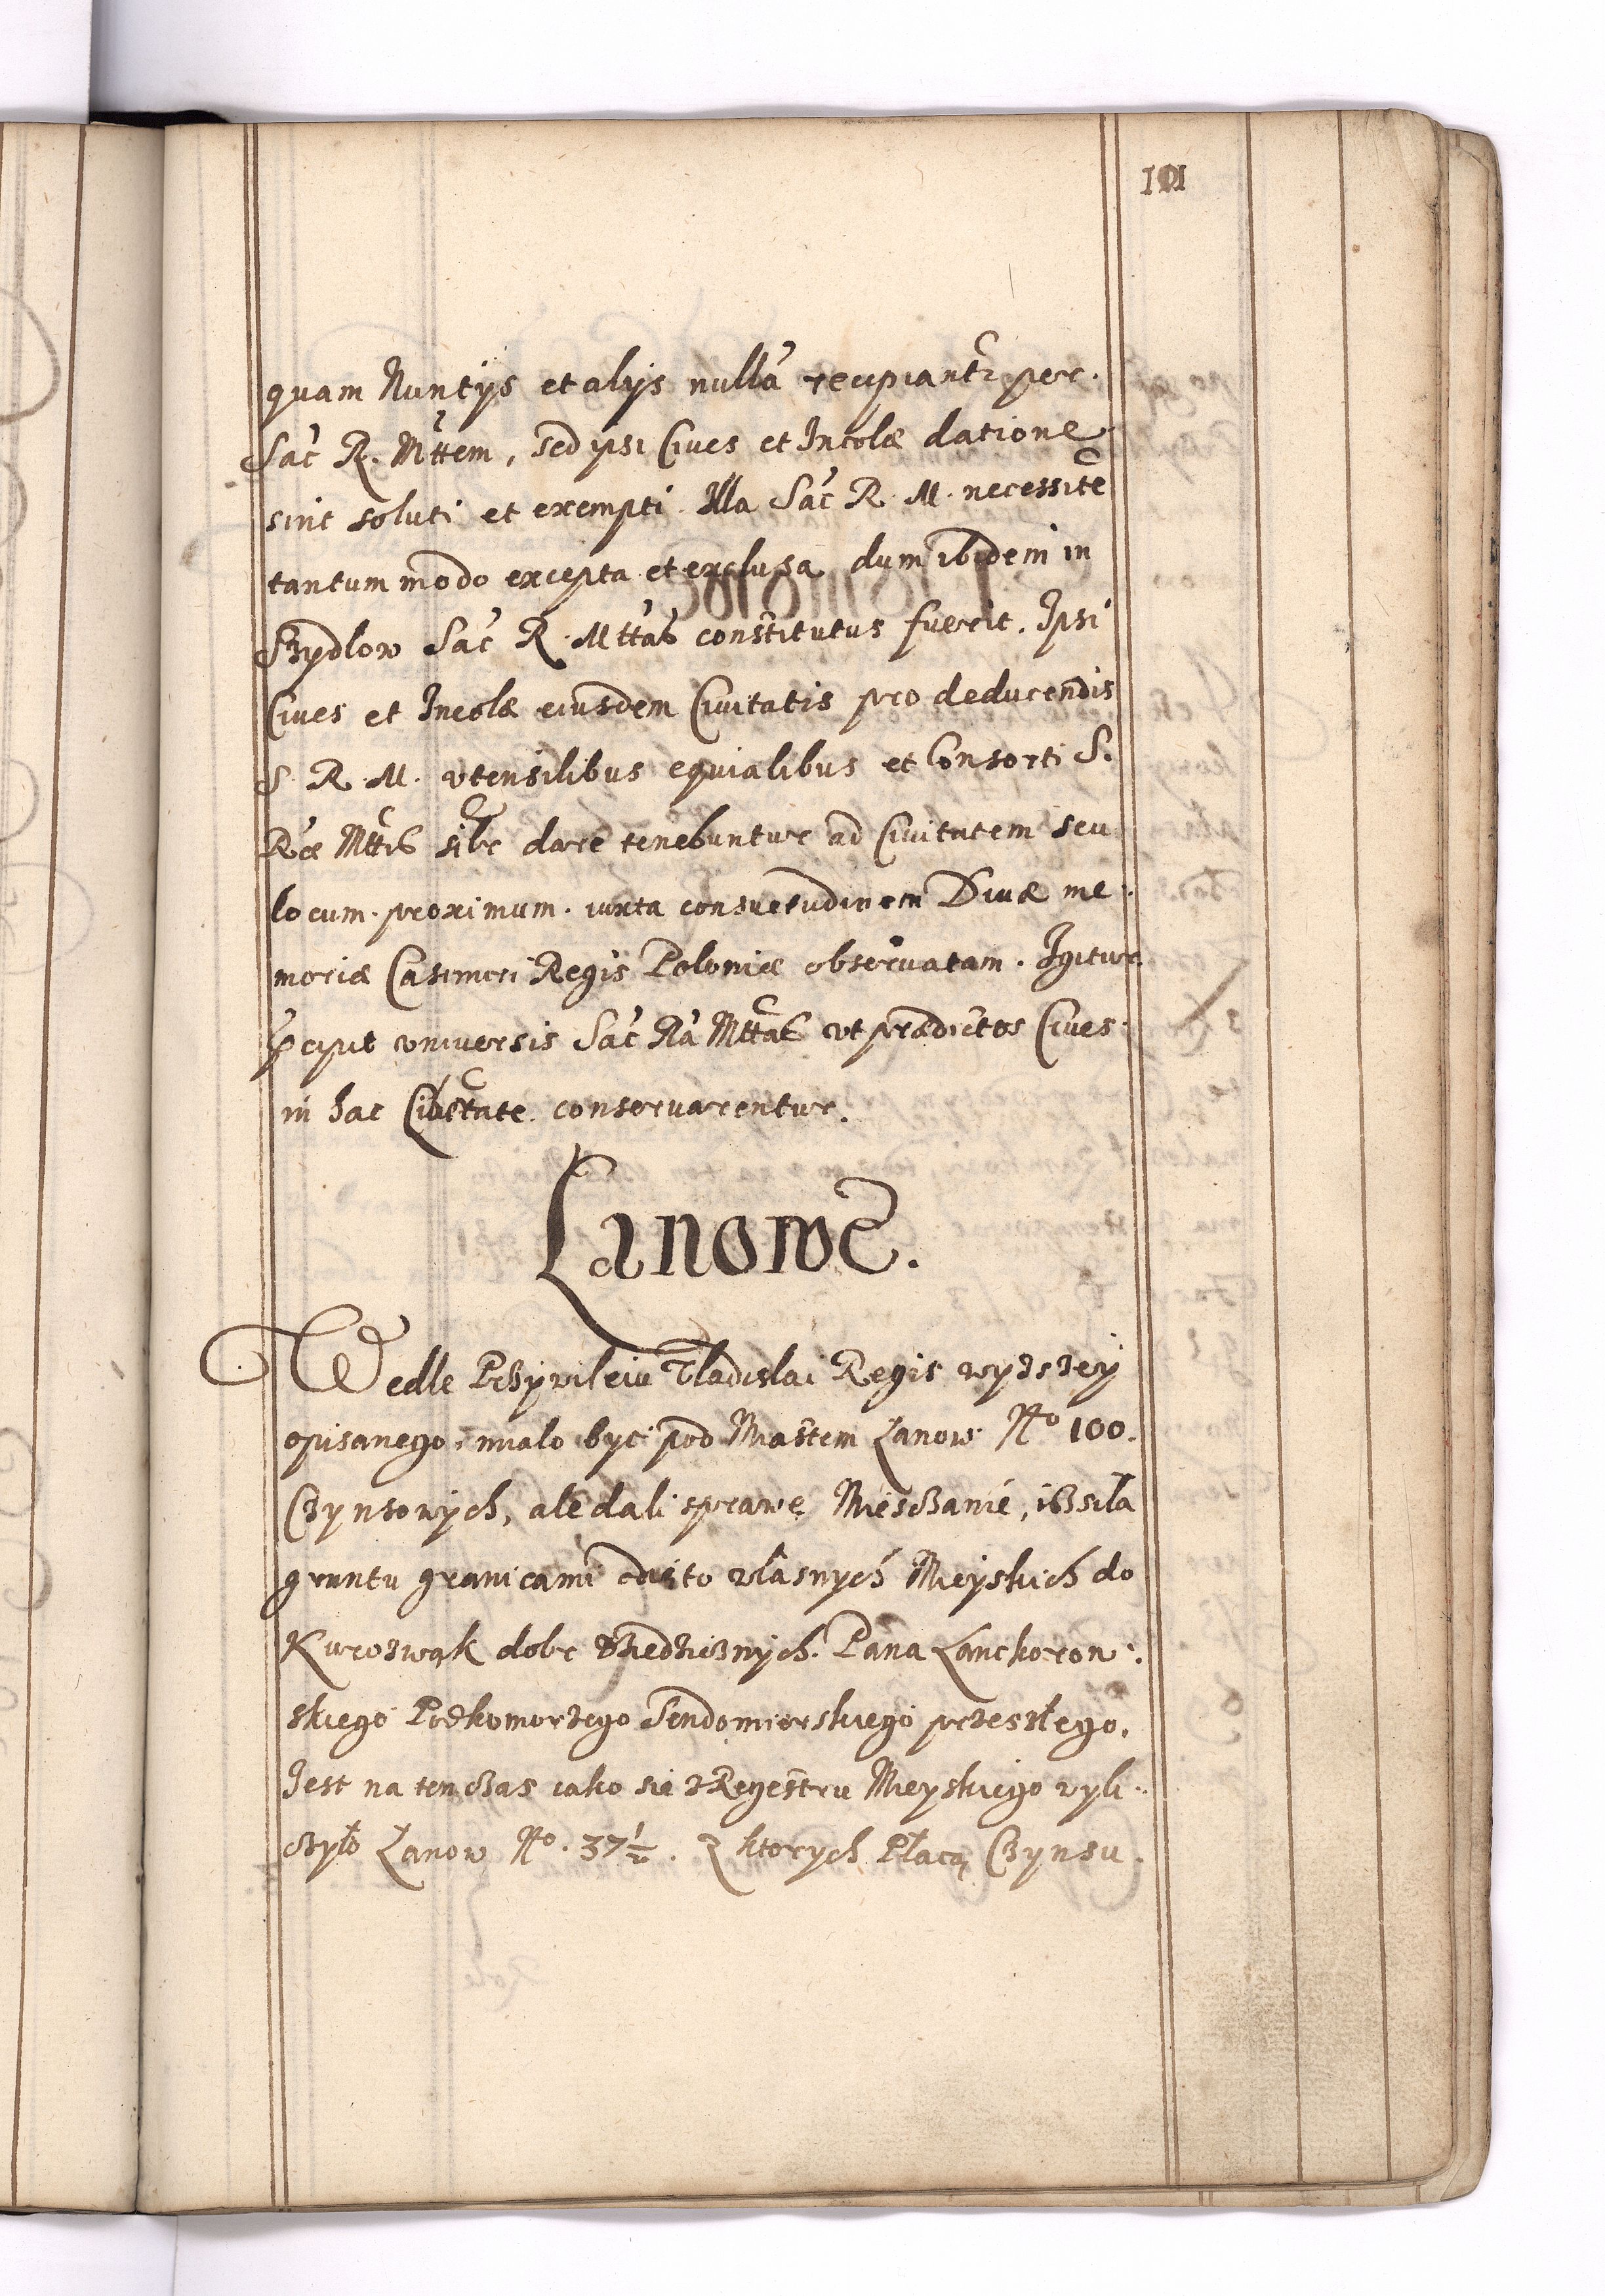 101
quam Nuntÿs et alijs nullá recipiantr per.
Sac R. Mttem, sed ipsi Ciues et Incolæ datione
sint soluti et exempti. Illa Sac R. M. necessite
tantum modo excepta et exclusa dum ibidem in
Szydlow Sac R. Mttas constitutus fuerit. Ipsi
Ciues et Incolæ eiusdem Ciuitatis pro deducendis
S. R. M. vtensilibus equialibus et Consorti S.
Ræ Mttis sibr dare tenebuntur ad Ciuitatem seu
locum proximum. iuxta consuetudinem Diuæ me:
moriæ Casimiri Regis Poloniæ obseruatam. Igitur
pcipit vniuersis Sac Ra Mttas vt prædictos Ciues
in hac Libertate conseruarentur.
Łanowe.
Wedle Przywileiu Vladislai Regis wyzszey
opisanego, mialo byc pod Miastem Łanow No 100.
Czynsowych, ale dali sprawę Miesczanie, iz siła
gruntu granicami odięto własnych Mieyskich do
Kurozwąk dobr dziedzicznych. Pana Lanckoron:
skiego Podkomorzego Sendomierskiego przeszłego.
Jest na ten czas iako się z Regestru Mieyskiego wyli:
czyło Łanow No. 37 1/2. Z ktorych Płacą Czynsu.